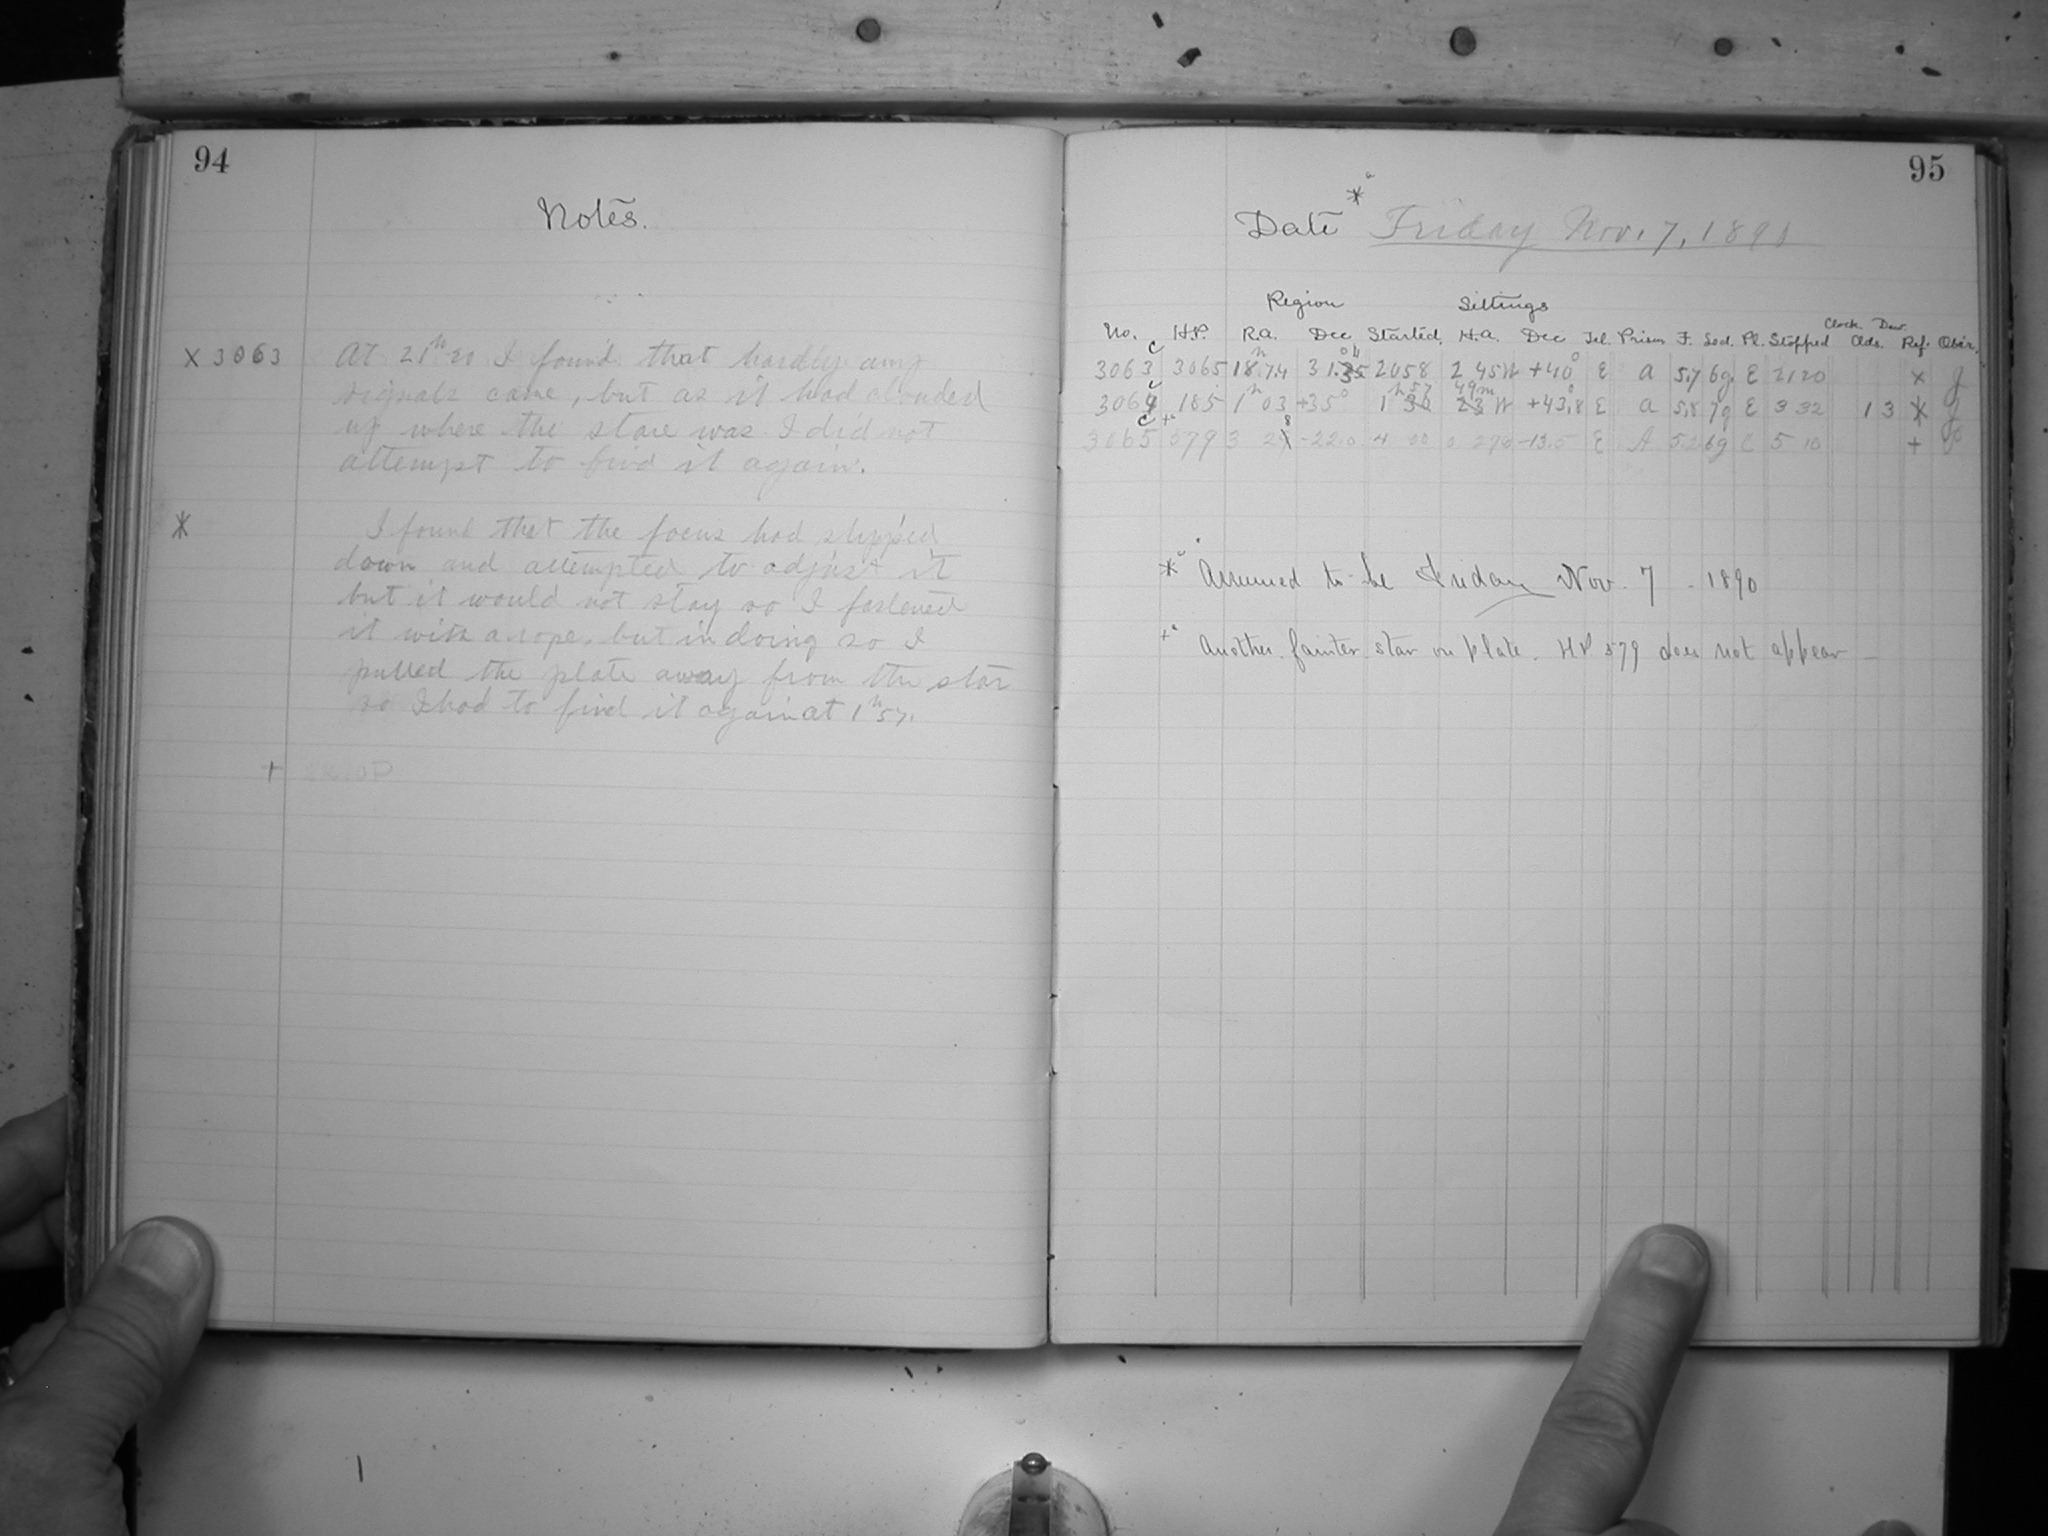 94
Notes.
X 3063 At 21h 20 I found that hardly any
signals came, but as it had clouded
up where the stare was I did not
attempt to find it again.
* I found that the focus had slipped
down and attempted to adjust it
but it would not stay so I fastened
it with a rope, but in doing so I
pulled the plate away from the star
so I had to find it again at 1h 57.
+
95
Date * Friday Nov. 7, 1890
Region Settings
Clock Dew.
No. H.P. R.A. Dec Started, H.A. Dec Tel. Prism F. Sed. Pl. Stopped Clds. Ref. Obsr.
3063 3065 18h 7.4 31. 2058 2 45W +40° E A 5.7 6g E 2120 x J
3064 185 1h 03 +35° 1h 57 49m W +43.8 E A 5.8 7g E 3 32 1 3 * J
3065 579 3 28 -22.0 4 00 0 -13.5 E A 5.2 6g E 5 10 +
* Assumed to be Friday Nov. 7 - 1890
+ Another fainter star on plate. HP 579 does not appear